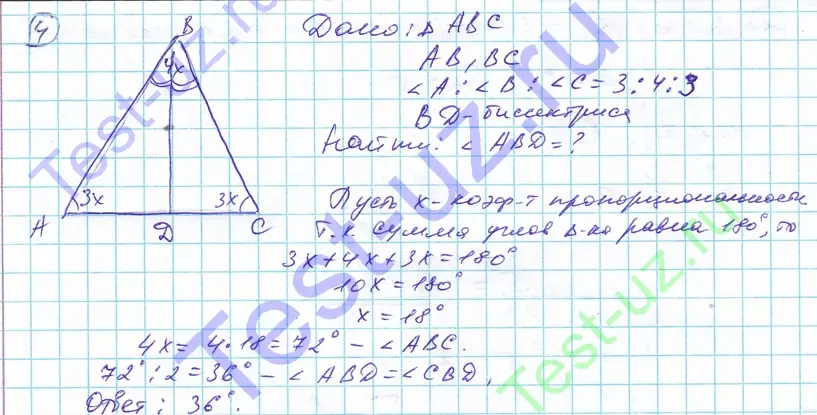 4
B
4x
3x
3x
A
D
C
Дано: Δ ABC
AB, BC
∠A : ∠B : ∠C = 3 : 4 : 3
BD - биссектриса
Найти: ∠ ABD = ?
Пусть x - коэф-т пропорциональности
Т.к. сумма углов Δ-ка равна 180°, то
3x + 4x + 3x = 180°
10x = 180°
x = 18°
4x = 4 · 18 = 72° - ∠ABC.
72° : 2 = 36° - ∠ ABD = ∠CBD,
Ответ: 36°.
Test-uz.ru
Test-uz.ru
Test-uz.ru